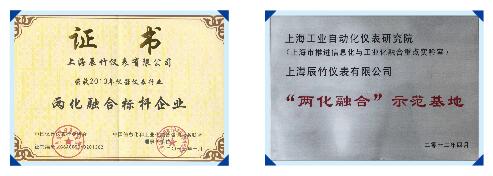 证 书
上海辰竹仪表有限公司
荣获2013年仪器仪表行业
两化融合标杆企业
上海工业自动化仪表研究院
（上海市推进信息化与工业化融合重点实验室）
上海辰竹仪表有限公司
“两化融合”示范基地
二零一二年四月